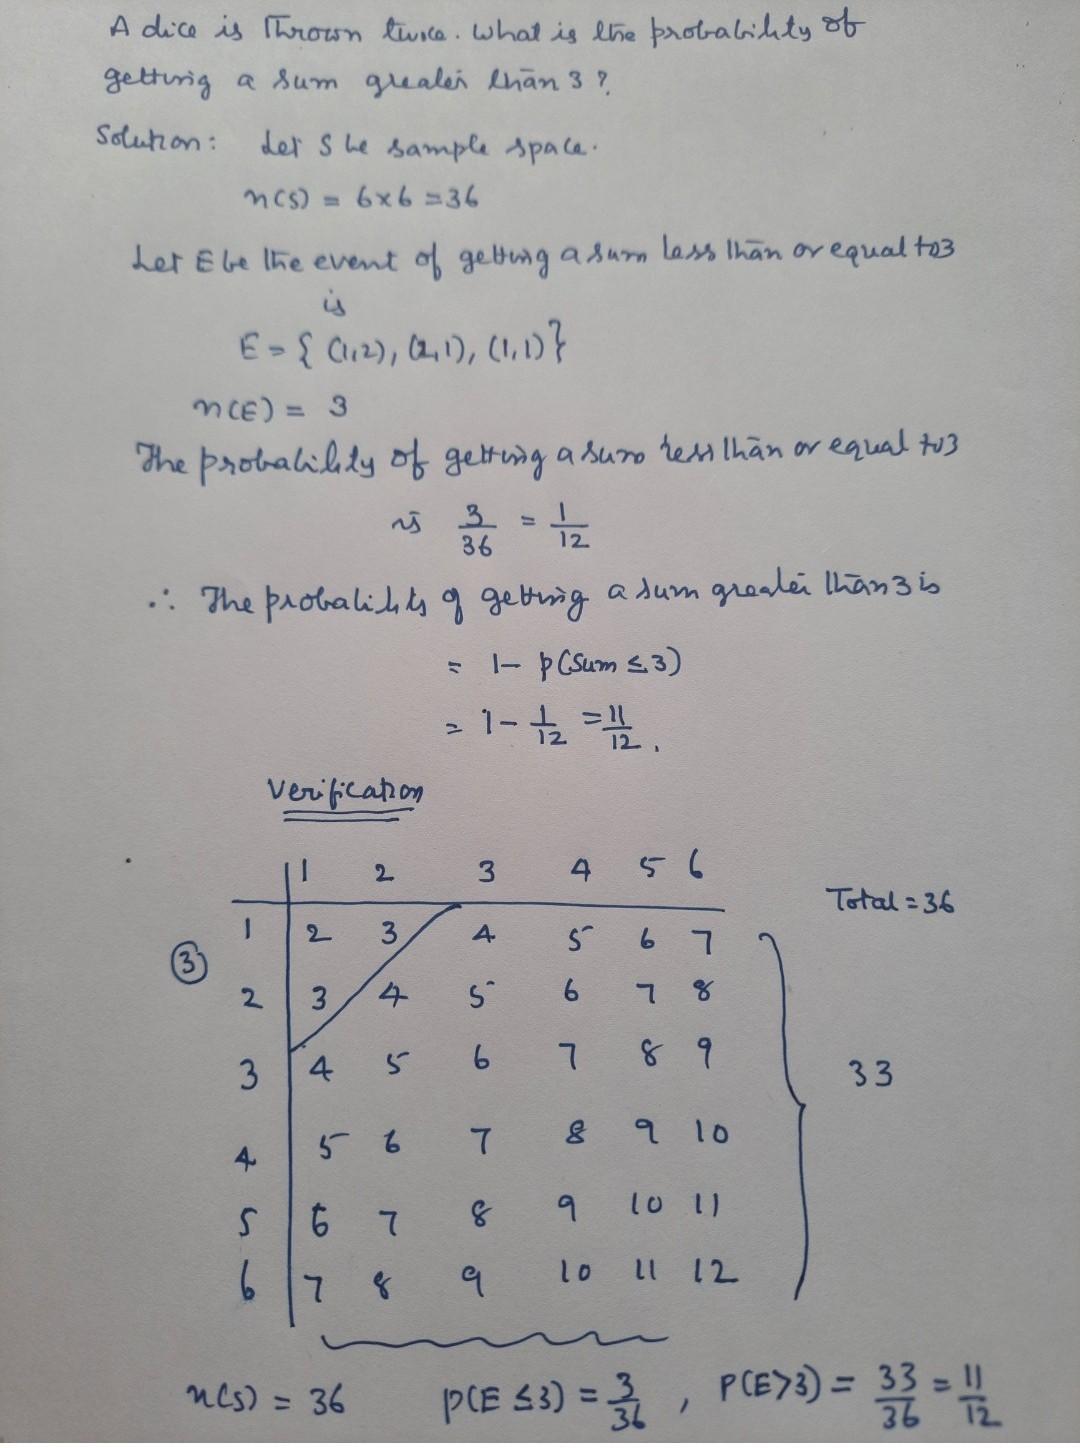 A dice is Thrown twice. What is the probability of
getting a sum greater than 3?
Solution: Let S be sample space.
n(S) = 6×6 = 36
Let E be the event of getting a sum less than or equal to 3
is
E = { (1,2), (2,1), (1,1) }
n(E) = 3
The probability of getting a sum less than or equal to 3
is 3/36 = 1/12
∴ The probability of getting a sum greater than 3 is
= 1 - p(Sum ≤ 3)
= 1 - 1/12 = 11/12.
Verification
1 2 3 4 5 6
Total = 36
1 2 3 4 5 6 7
3
2 3 4 5 6 7 8
3 4 5 6 7 8 9
33
4 5 6 7 8 9 10
5 6 7 8 9 10 11
6 7 8 9 10 11 12
n(S) = 36 p(E ≤ 3) = 3/36 , P(E>3) = 33/36 = 11/12